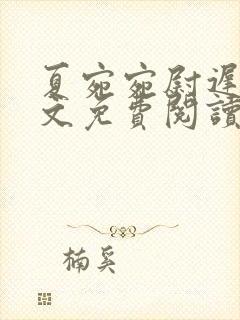 夏宛宛尉遲
文免費閱讀
楠奚